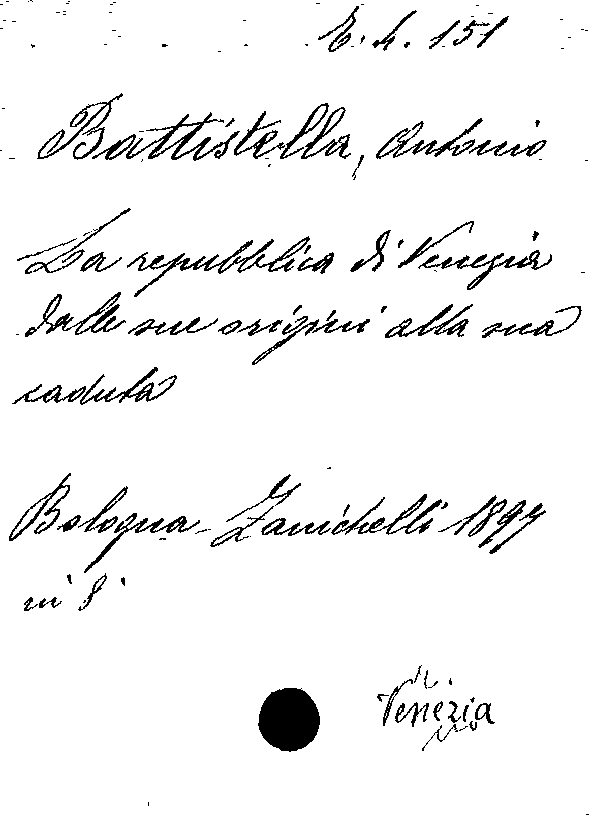 E. h. 151
Battistella, Antonio
La repubblica di Venezia
dalle sue origini alla sua
caduta
Bologna - Zanichelli 1897
in 8°
Venezia